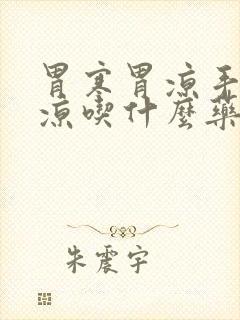 胃寒胃涼手
涼喫什麼藥
朱震宇